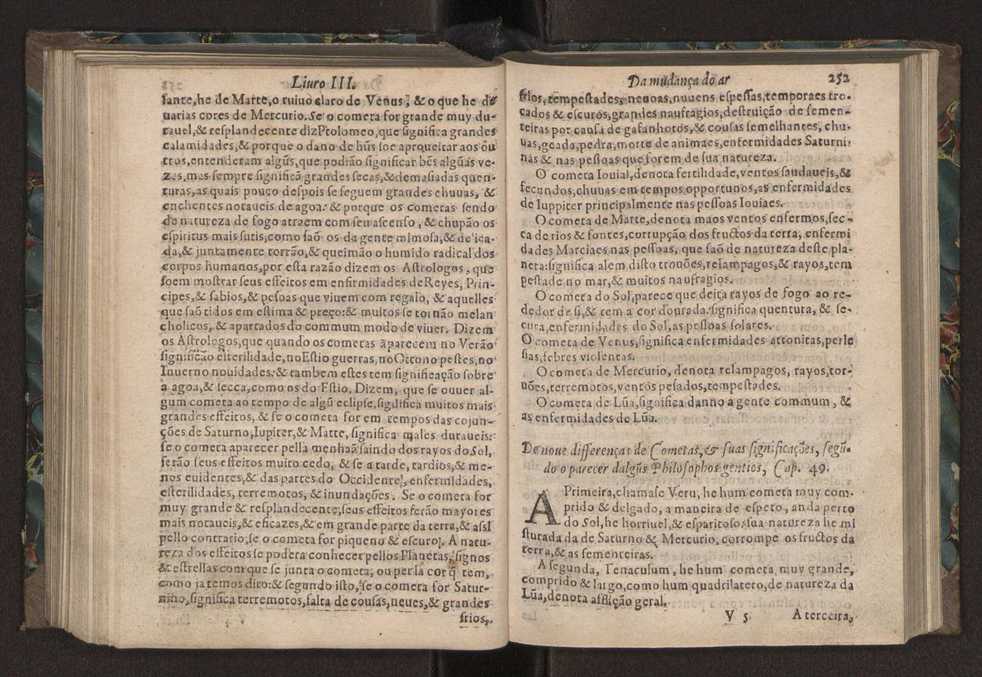 Liuro III.
sante,he de Marte,o ruiuo claro de Venus, & o que he de
uarias cores de Mercurio.Se o cometa for grande muy du-
rauel,& resplandecente diz Ptolomeo,que significa grandes
calamidades,& porque o dano de hũs soe aproueitar aos ou
tros,entenderam algũs,que podrão significar bẽs algũas ve-
zes,mas sempre significã grandes secas,& demasiadas quen-
turas,as quais pouco despois se seguem grandes chuuas, &
enchentes notaueis de agoa: & porque os cometas sendo
de natureza de fogo atraem com seu ascenso, & chupão os
espiritus mais sutis,como saõ os da gente mimosa,& delica-
da,& juntamente torrão,& queimão o humido radical dos
corpos humanos,por esta razão dizem os Astrologos, que
soem mostrar seus effeitos em enfirmidades de Reyes, Prin-
cipes,& sabios,& pesoas que viuem com regalo, & aquelles
que saõ tidos em estima & preço:& muitos se tornão melan
cholicos, & apartados do commum modo de viuer. Dizem
os Astrologos,que quando os cometas aparecem no Verão
significão esterilidade,no Estio guerras,no Otono pestes,no
Inuerno nouidades:& tambem estes tem significação sobre
a agoa,& secca,como os do Estio. Dizem, que se ouuer al-
gum cometa ao tempo de algũ eclipse,significa muitos mais
grandes effeitos, & se o cometa for em tempos das cojun-
ções de Saturno,Iupiter,& Marte, significa males duraueis:
se o cometa aparecer pella menhaã saindo dos rayos do Sol,
serão seus effeitos muito cedo, & se a tarde, tardios,& me-
nos euidentes,& das partes do Occidente, enfermidades,
esterilidades, terremotos, & inundações. Se o cometa for
muy grande & resplandecente,seus effeitos serão mayores
mais notaueis,& eficazes,& em grande parte da terra,& assi
pello contrario,se o cometa for piqueno & escuro. A natu-
reza dos effeitos se podera conhecer pellos Planetas, signos
& estrellas com que se junta o cometa, ou perla cor q̃ tem,
como ja temos dito:& segundo isto, se o cometa for Satur-
nino,significa terremotos,falta de cousas,neues,& grandes
frios,
Da mudança do ar 252
frios,tempestades,neuoas,nuuens espessas,temporaes tro-
cados & escuros,grandes naufragios,destruição de semen-
teiras por causa de gafanhotos,& cousas semelhantes, chu-
uas,geada,pedra,morte de animaes,enfermidades Saturni-
nas & nas pessoas que forem de sua natureza.
O cometa Iouial,denota fertilidade,ventos saudaueis,&
fecundos,chuuas em tempos opportunos,as enfermidades
de Iuppiter principalmente nas pessoas Iouiaes.
O cometa de Marte,denota maos ventos enfermos,sec-
ta de rios & fontes,corrupção dos fructos da terra, enfermi
dades Marciaes nas pessoas, que saõ de natureza deste pla-
neta:significa alem disto trouões,relampagos,& rayos,tem
pestade no mar,& muitos naufragios.
O cometa do Sol,parece que deita rayos de fogo ao re-
dedor de si,& tem a cor dourada,significa quentura, & se-
cura,enfermidades do Sol,as pessoas solares.
O cometa de Venus,significa enfermidades attonitas,perle
sias,febres violentas.
O cometa de Mercurio, denota relampagos, rayos,tor-
uões,terremotos,ventos pesados,tempestades.
O cometa de Lũa,significa danno a gente commum, &
as enfermidades de Lũa.
De noue differenças de Cometas,& suas significações, segũ-
do o parecer dalgũs Philosophos gentios, Cap. 49.
A Primeira,chamase Veru, he hum cometa muy com-
prido & delgado, a maneira de espeto, anda perto
do Sol,he horriuel,& espantoso:sua natureza he mi
sturada da de Saturno & Mercurio, corrompe os fructos da
terra,& as sementeiras.
A segunda, Tenaculum, he hum cometa muy grande,
comprido & largo,como hum quadrilatero,de natureza da
Lũa,denota afflição geral.
V 5. A terceira,